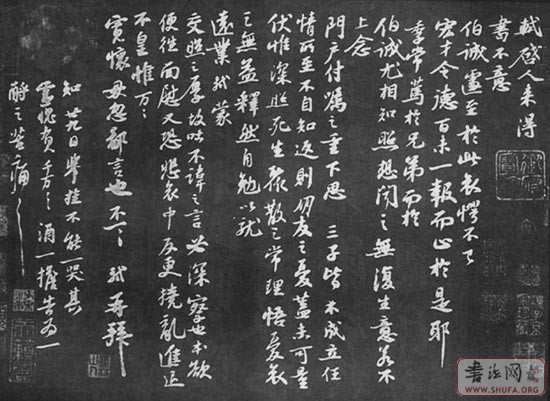 軾啓人來得
書不意
伯誠遽至於此哀愕不已
宏才令德百未一報而止於是耶
季常篤於兄弟而於
伯誠尤相知照想聞之無復生意若不
上念
門户付囑之重下思三子皆未成立任
情所至不自知返則朋友之憂蓋未可量
伏惟深照死生聚散之常理悟憂哀
之無益釋然自勉以就
遠業軾蒙
交照之厚故吐不諱之言必深察也本欲
便往面慰又恐悲哀中反更撓亂進退
不皇惟万万
寬懷毋忽鄙言也不一一軾再拜
知廿九日舉挂不能一哭其
靈愧負千万千万酒一擔告為一
酹之苦痛苦痛
書法网
WWW.SHUFA.ORG